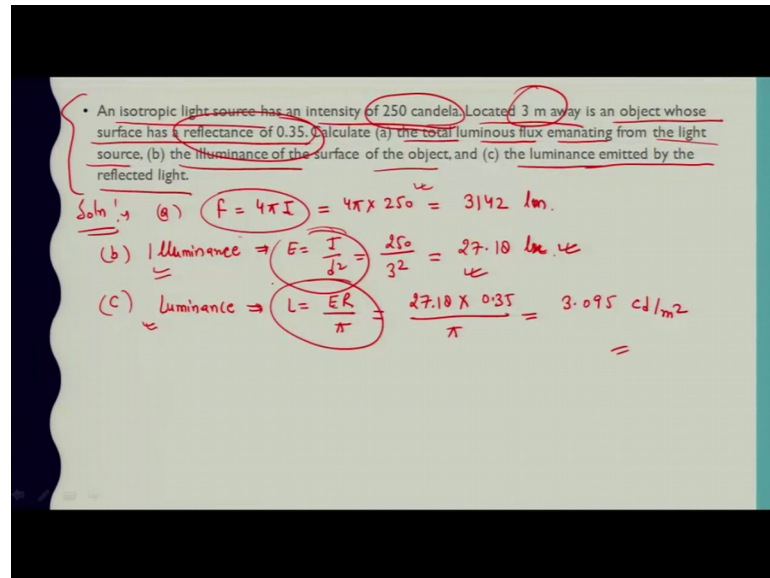 • An isotropic light source has an intensity of 250 candela. Located 3 m away is an object whose
surface has a reflectance of 0.35. Calculate (a) the total luminous flux emanating from the light
source, (b) the illuminance of the surface of the object, and (c) the luminance emitted by the
reflected light.
Soln: → (a) F = 4πI = 4π × 250 = 3142 lm.
(b) Illuminance ⇒ E = I/d² = 250/3² = 27.18 lx.
(c) Luminance ⇒ L = ER/π = 27.18 × 0.35/π = 3.095 cd/m²